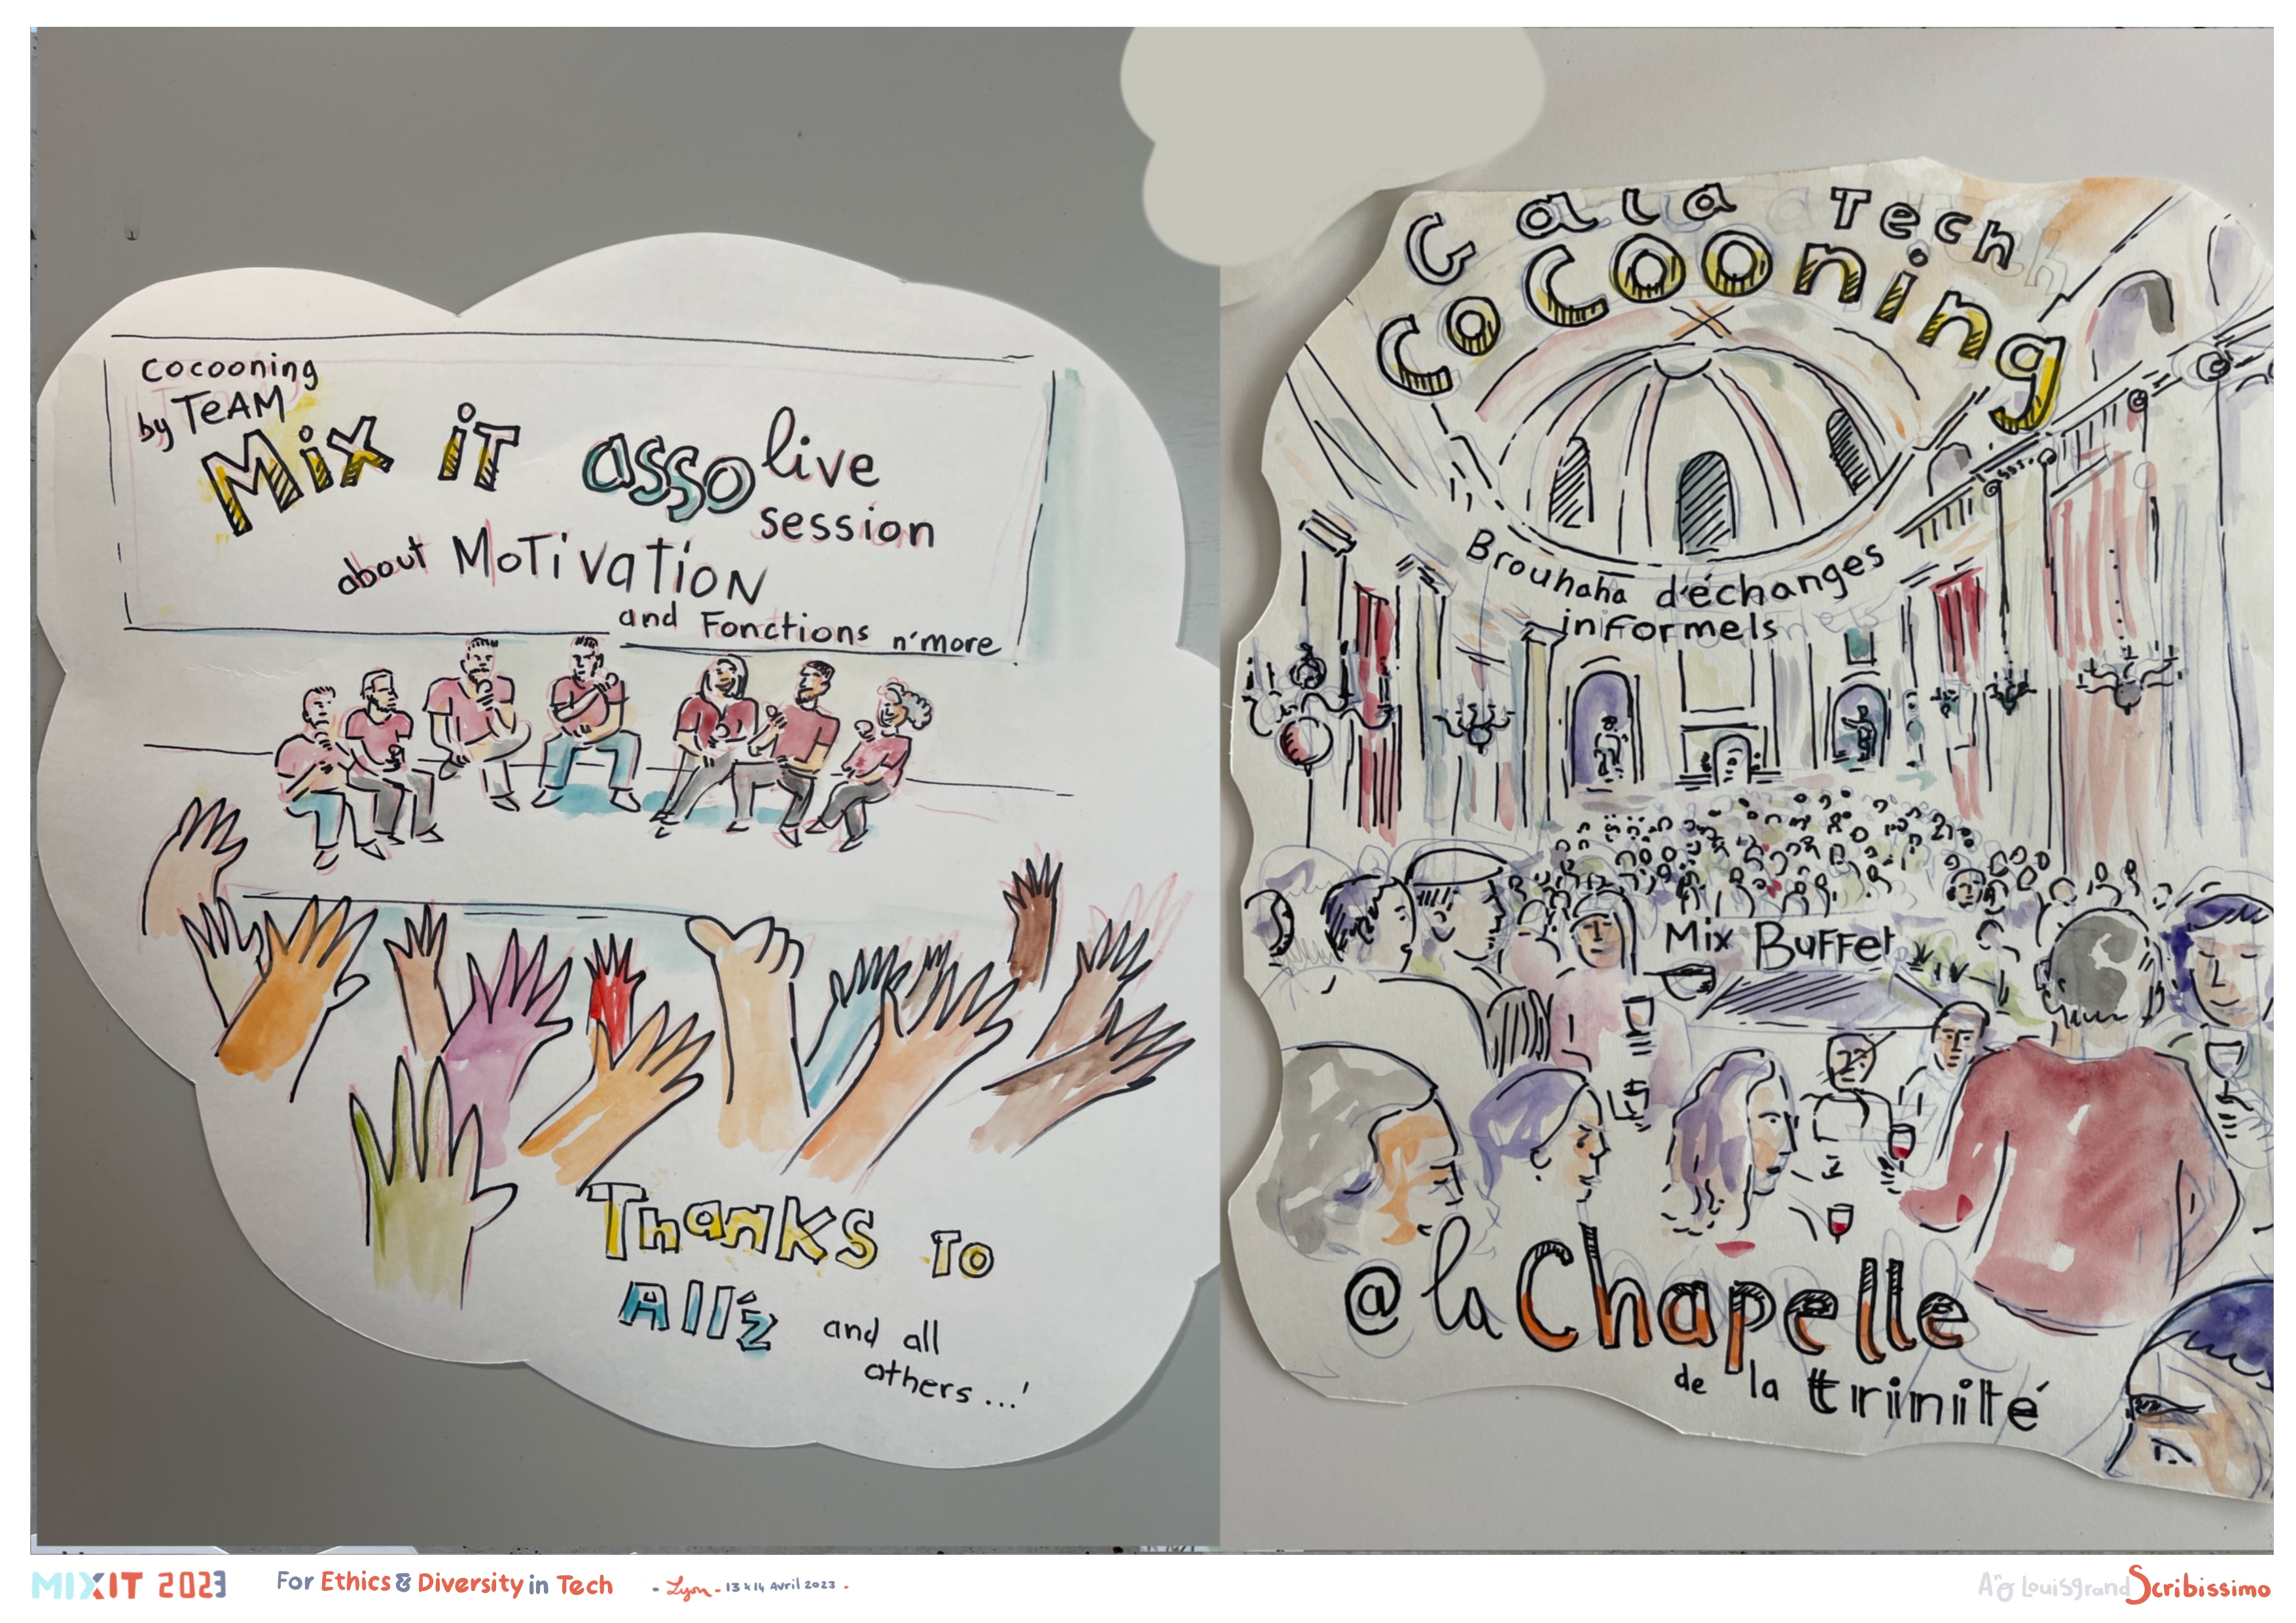 cocooning
by TeAM
Mix iT asso live
session
about MoTivaTioN
and Fonctions n'more
Thanks To
All'z and all
others...!
Gala Tech
Cocooning
Brouhaha d'échanges
inFormels
Mix BuFFet
@ la Chapelle
de la trinité
MIXIT 2023 For Ethics & Diversity in Tech - Lyon - 13 & 14 Avril 2023 -
Louisgrand Scribissimo